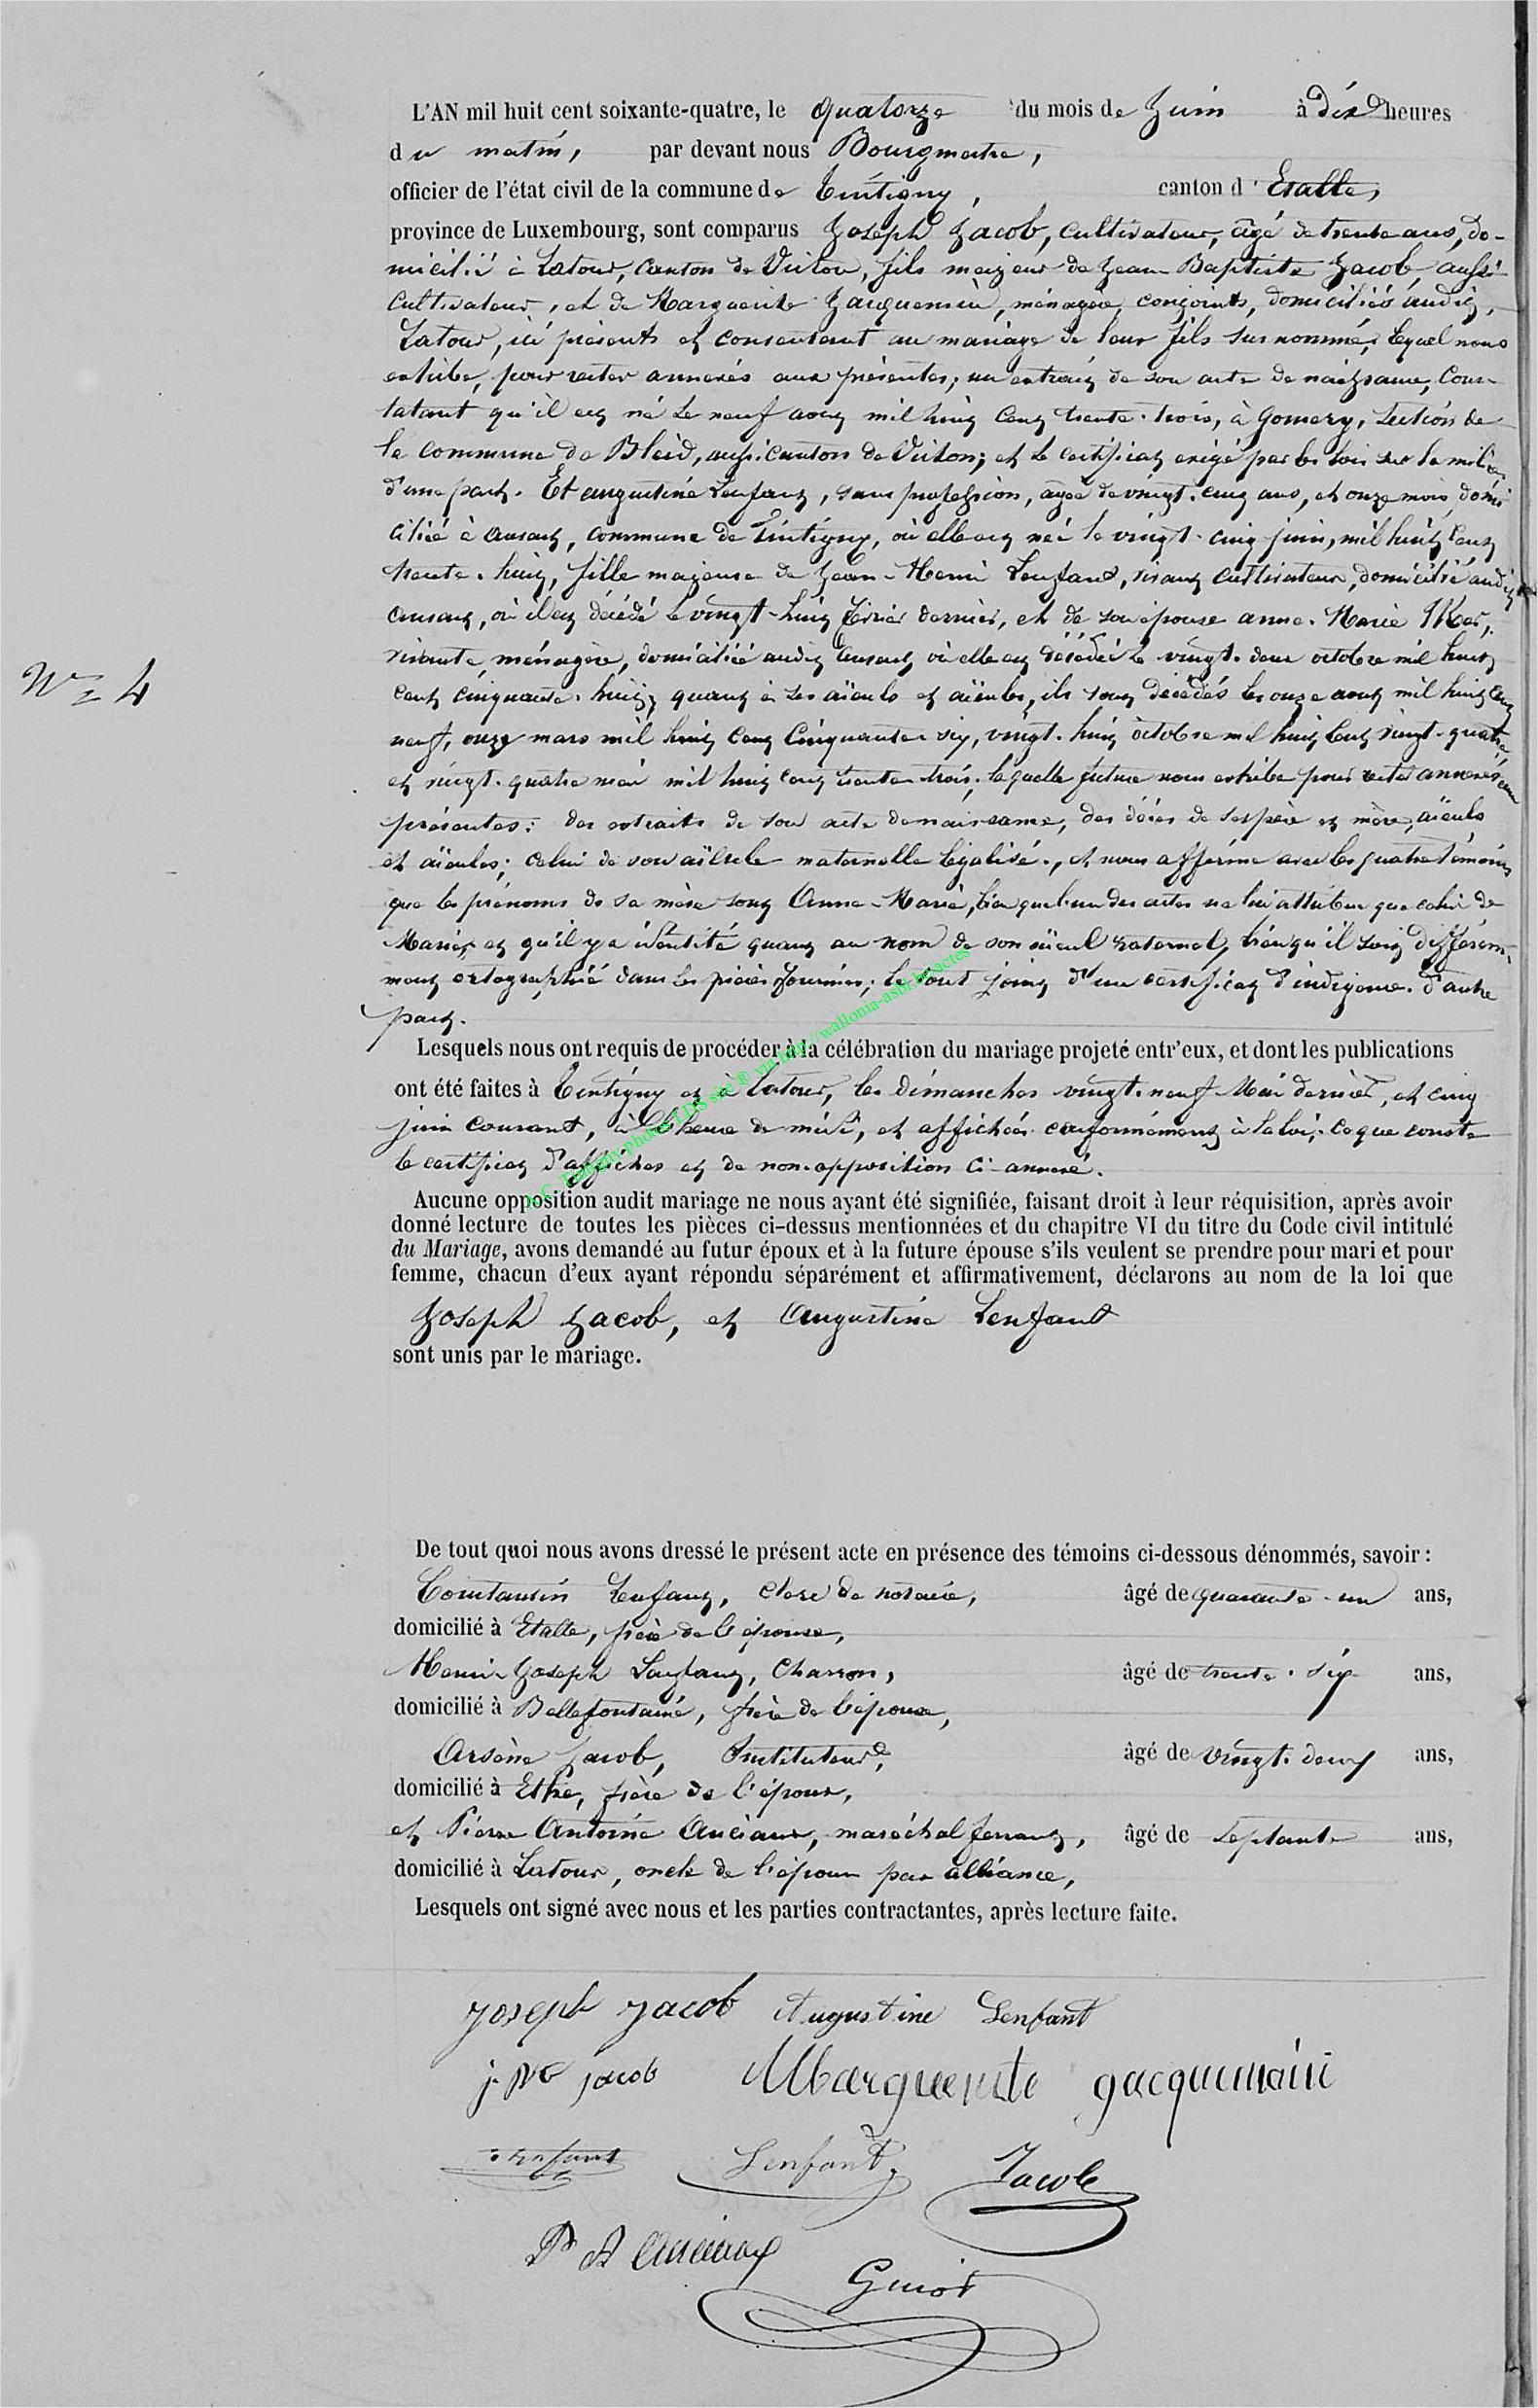 L'AN mil huit cent soixante-quatre, le quatorze du mois de Juin à dix heures
du matin, par devant nous Bourgmestre,
officier de l'état civil de la commune de Tintigny, canton d'Etalle,
province de Luxembourg, sont comparus Joseph Jacob, cultivateur, âgé de trente ans, do-
micilié à Latour, canton de Virton, fils majeur de Jean Baptiste Jacob, aussi
cultivateur, et de Marguerite Jacquemin, ménagère, conjoints, domiciliés audit
Latour, ici présents et consentant au mariage de leur fils surnommé; lequel nous
exhibe, pour rester annexés aux présentes; un extrait de son acte de naissance, cons-
tatant qu'il est né le neuf août mil huit cent trente-trois, à Gomery, section de
la commune de Bleid, aussi canton de Virton; et le certificat exigé par les lois sur la milice
d'une part. Et augustine Lenfant, sans profession, âgée de vingt-cinq ans, et onze mois, domi
ciliée à ansart, commune de Tintigny, où elle est née le vingt-cinq juin, mil huit cent
trente-huit, fille majeure de Jean-Henri Lenfant, vivant cultivateur, domicilié audit
ansart, où il est décédé le vingt-huit février dernier, et de son épouse anne-Marie
vivante ménagère, domiciliée audit ansart où elle est décédée le vingt-deux octobre mil huit
cent cinquante-huit; quant à ses aïeuls et aïeules, ils sont décédés les onze août mil huit cent
neuf, onze mars mil huit cent cinquante-six, vingt-huit octobre mil huit cent vingt-quatre
et vingt-quatre mai mil huit cent trente-trois; laquelle future nous exhibe pour rester annexés aux
présentes: des extraits de son acte de naissance, des décès de ses père et mère, aïeuls
et aïeules; celui de son aïeule maternelle légalisé., et nous affirme avec les quatre témoins
que les prénoms de sa mère sont Anne-Marie, bien que l'un des actes ne lui attribue que celui de
Marie; et qu'il y a identité quant au nom de son aïeul paternel, bien qu'il soit différem-
ment ortographié dans les pièces fournies; le tout joint d'un certificat d'indigence. d'autre
part.
Lesquels nous ont requis de procéder à la célébration du mariage projeté entr'eux, et dont les publications
ont été faites à Tintigny et à Latour, les dimanches vingt-neuf Mai dernier, et cinq
juin courant, à l'heure de midi, et affichées conformément à la loi; ce que conste
le certificat d'affiches et de non-opposition ci-annexé.
Aucune opposition audit mariage ne nous ayant été signifiée, faisant droit à leur réquisition, après avoir
donné lecture de toutes les pièces ci-dessus mentionnées et du chapitre VI du titre du Code civil intitulé
du Mariage, avons demandé au futur époux et à la future épouse s'ils veulent se prendre pour mari et pour
femme, chacun d'eux ayant répondu séparément et affirmativement, déclarons au nom de la loi que
Joseph Jacob, et Augustine Lenfant
sont unis par le mariage.
N° 4
De tout quoi nous avons dressé le présent acte en présence des témoins ci-dessous dénommés, savoir:
Constantin Lenfant, clerc de notaire, âgé de quarante-un ans,
domicilié à Etalle, frère de l'épouse,
Henri Joseph Lenfant, charron, âgé de trente-six ans,
domicilié à Bellefontaine, frère de l'épouse,
Arsène Jacob, Instituteur, âgé de vingt-deux ans,
domicilié à Ethe, frère de l'époux,
et Pierre Antoine Anciaux, maréchal ferrant, âgé de septante ans,
domicilié à Latour, oncle de l'époux par alliance,
Lesquels ont signé avec nous et les parties contractantes, après lecture faite.
joseph jacob Augustine Lenfant
j. Bte jacob Marguerite gacquemain
Lenfant Lenfant Jacob
P A Anciaux
Guiot